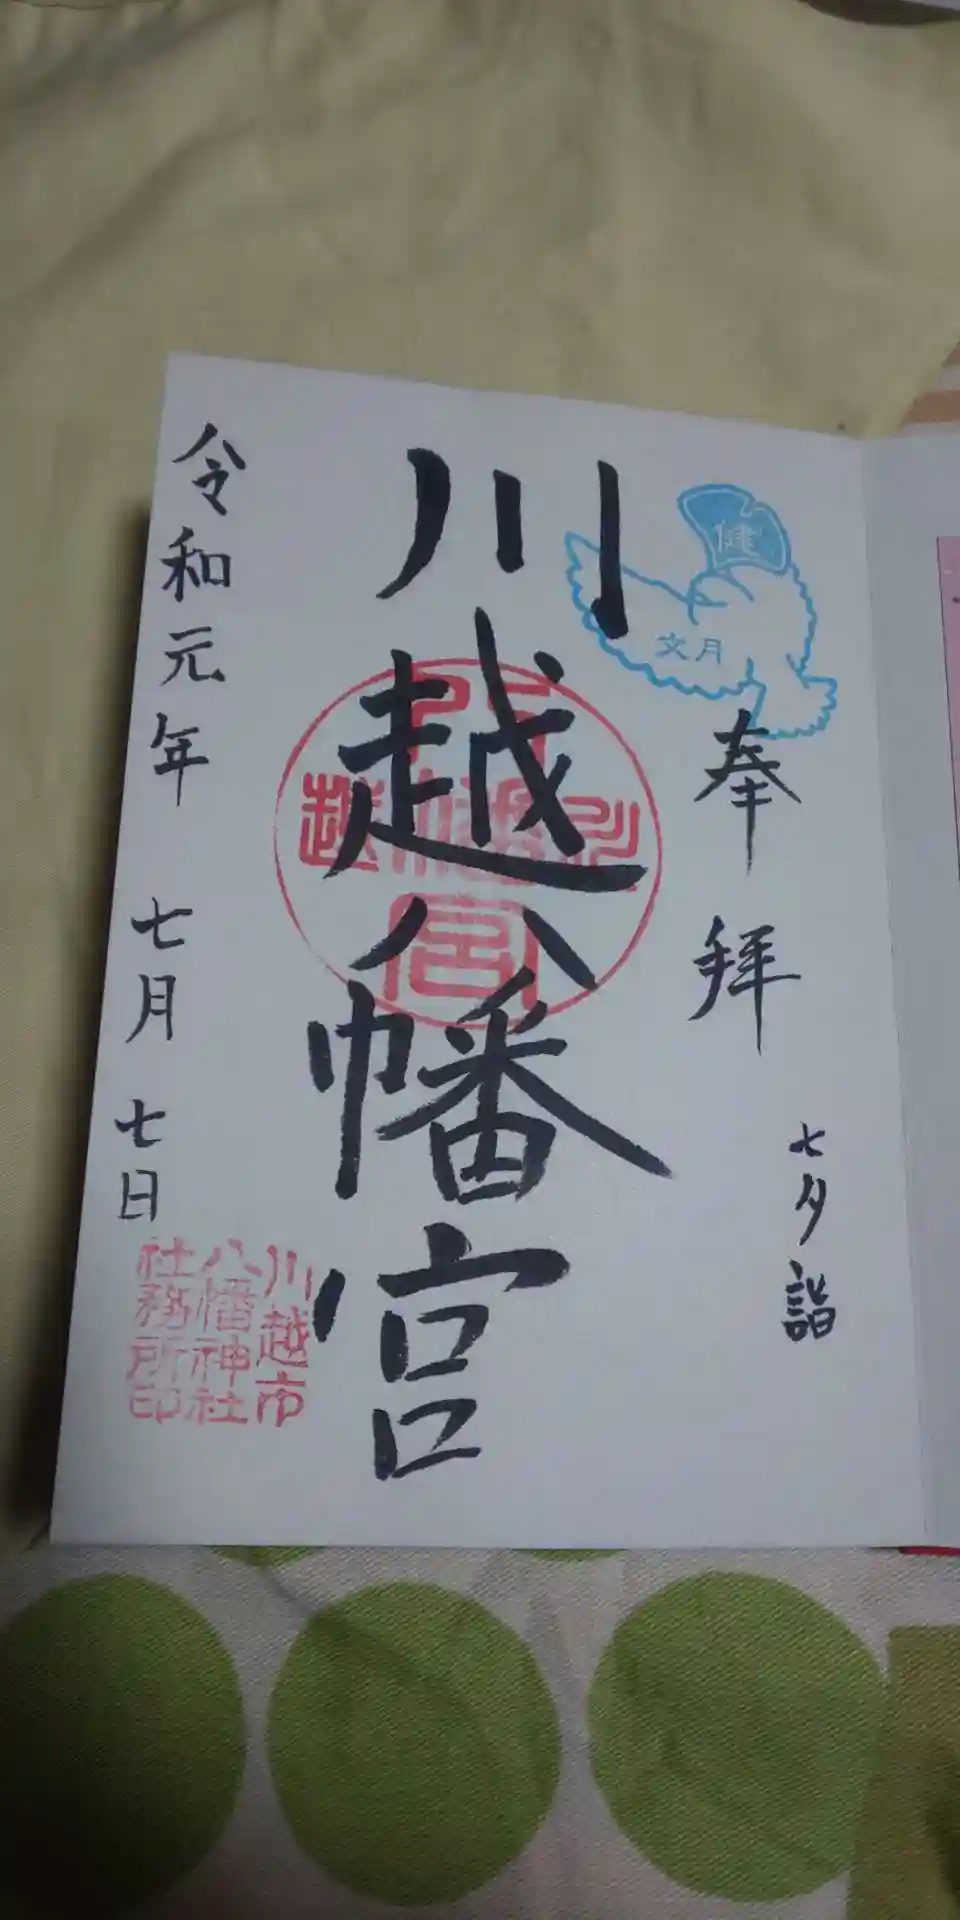 健
文月
奉拝
七夕詣
川越八幡宮
川越
八幡宮
令和元年 七月 七日
川越市
八幡神社
社務所印